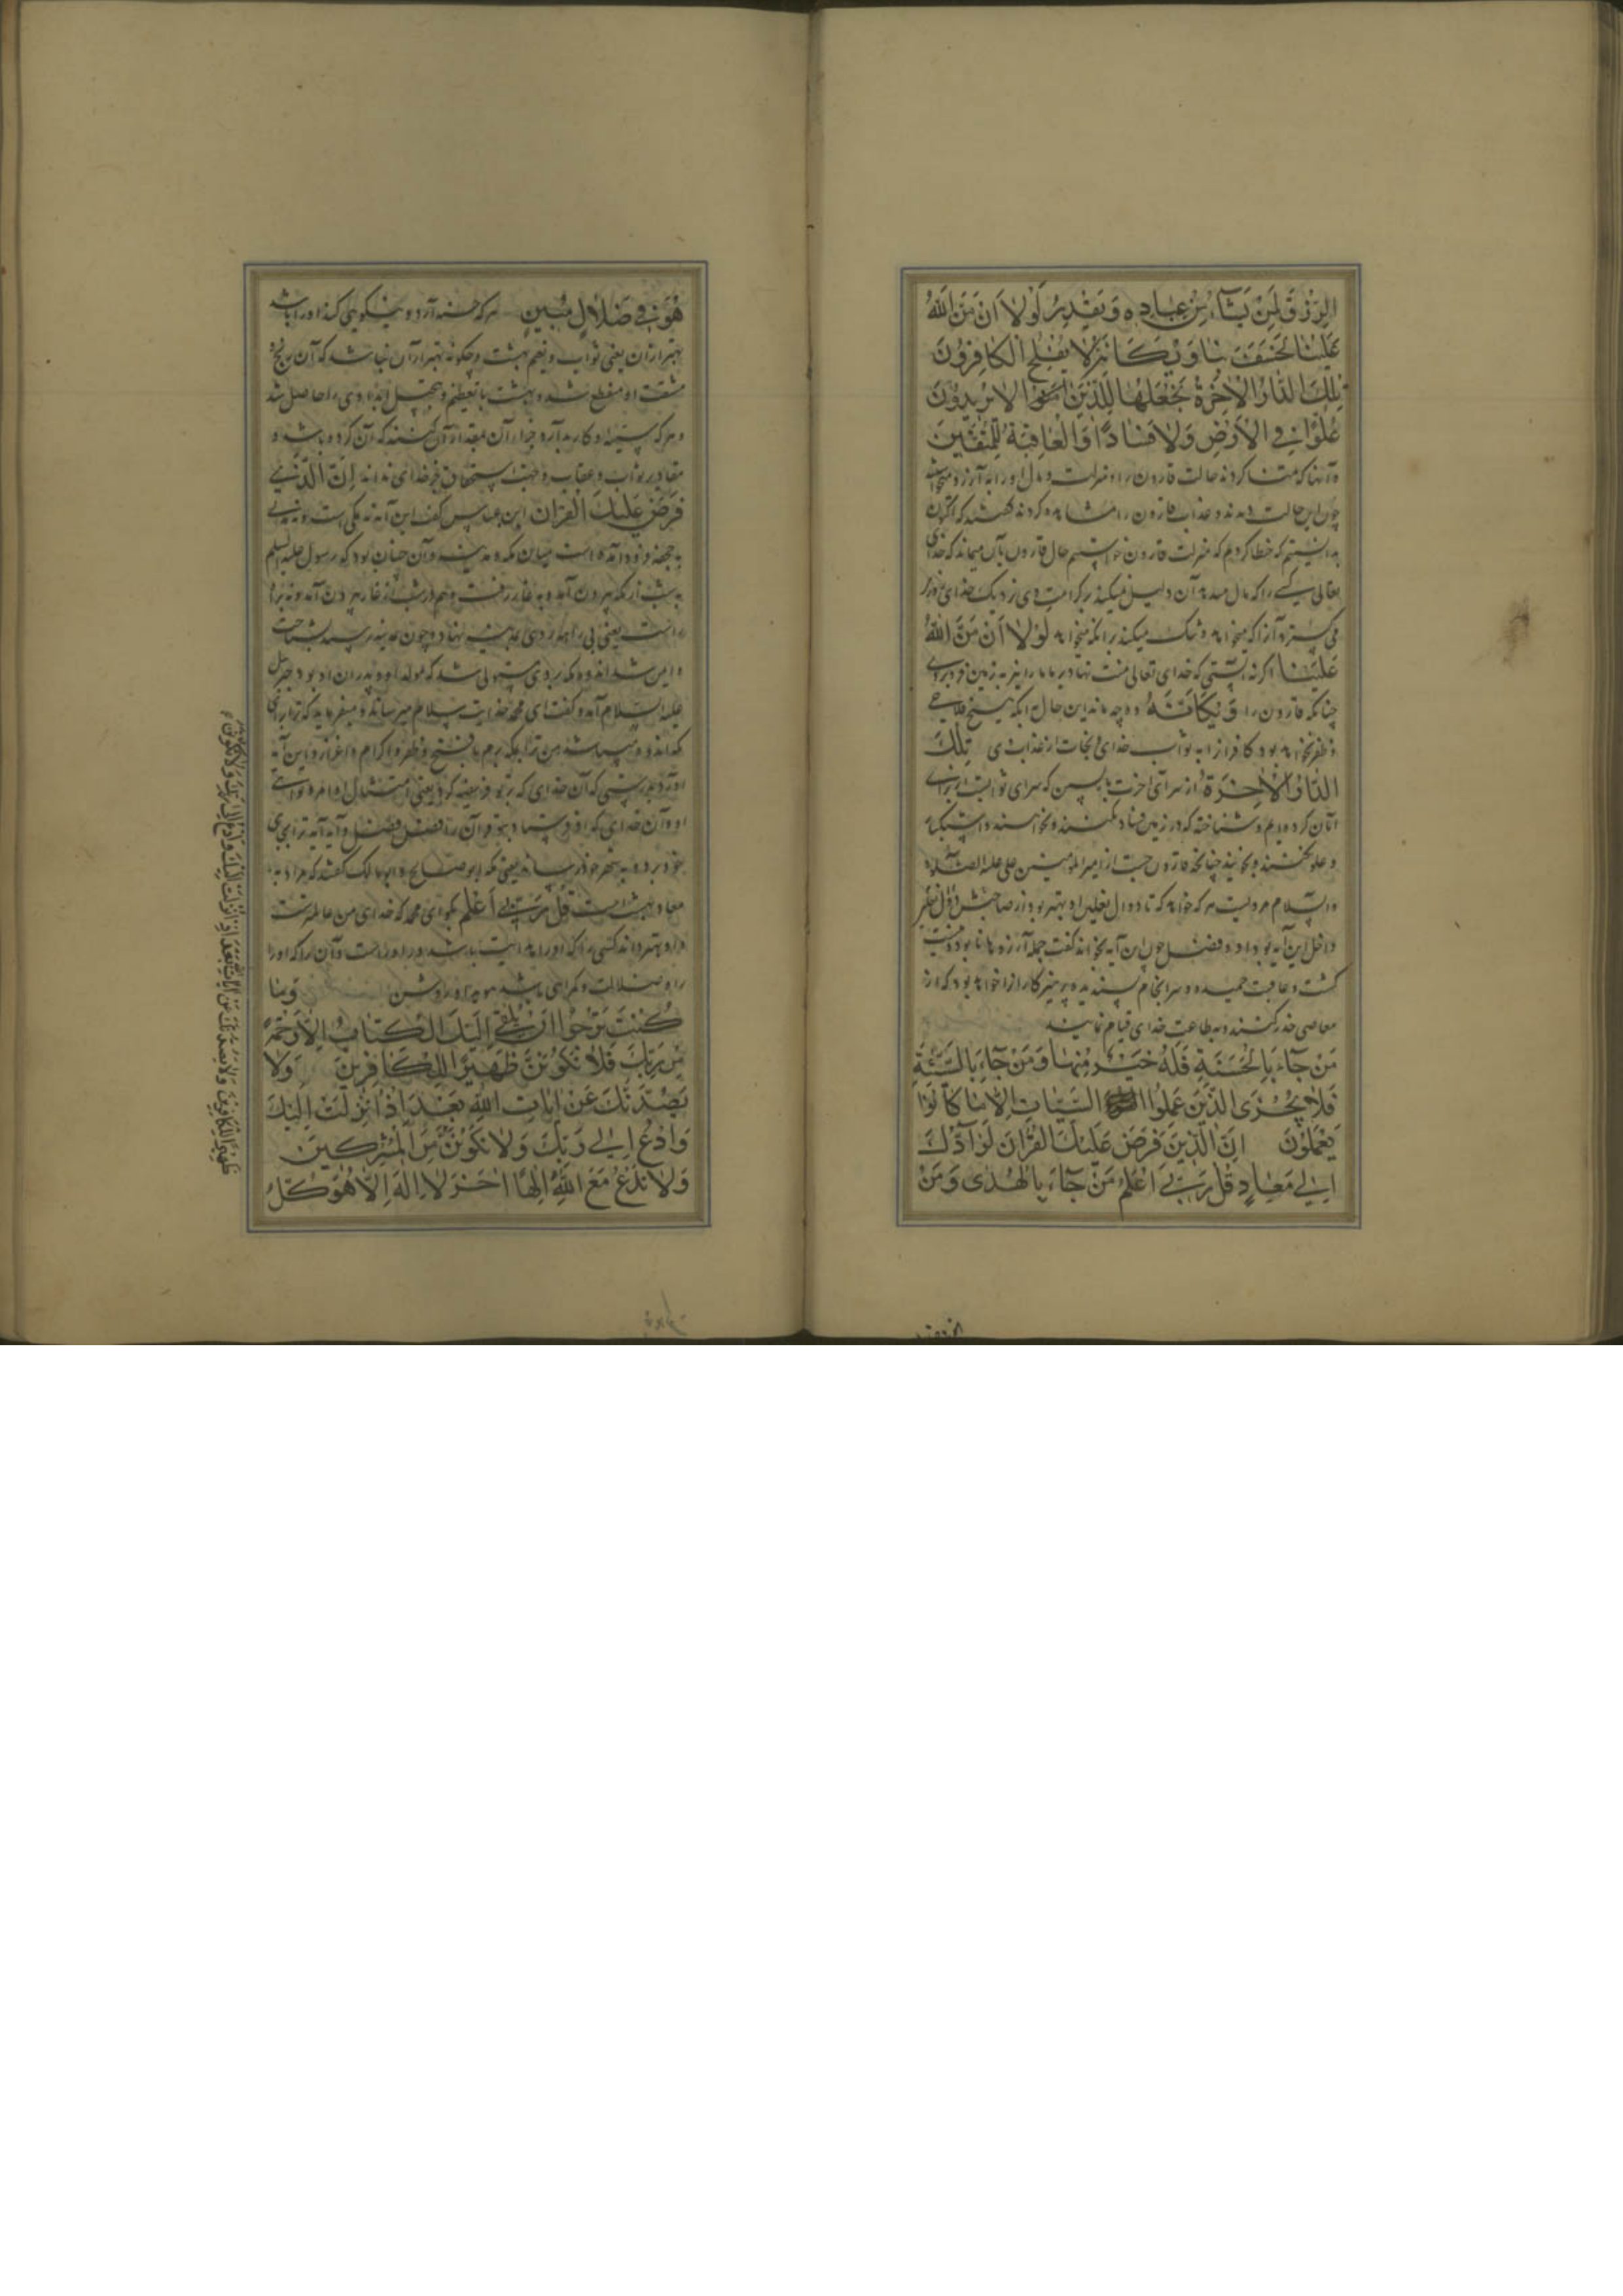 الرِّزْقَ لِمَنْ يَشَآءُ مِنْ عِبادِهِ وَيَقْدِرُ لَوْلا اَنْ مَنَّ اللهُ
عَلَيْنا لَخَسَفَ بِنا وَيْكَاَنَّهُ لا يُفْلِحُ الْكافِرُونَ
تِلْكَ الدّارُ الْاخِرَةُ نَجْعَلُها لِلَّذينَ لا يُريدُونَ
عُلُوًّا فِى الْاَرْضِ وَلا فَسادًا وَالْعاقِبَةُ لِلْمُتَّقينَ
وآنها که تمنا کردند حالت قارون را و منزلت و مال او را به آرزو میخواستند
چون این حالت دیدند و عذاب قارون را مشاهده کردند گفتند که اکنون
بدانستیم که خطا کردیم که منزلت قارون خواستیم حال قارون بآن میماند که خدای
تعالی کسی را که مال میدهد آن دلیل نمیکند بر کرامت وی نزدیک خدای
می گسترد آنرا که میخواهد و تنگ میکند بر آنکه میخواهد لَوْلا اَنْ مَنَّ اللهُ
عَلَيْنا اگر نه آنستی که خدای تعالی منت نهاد بر ما ما را نیز به زمین فرو بردی
چنانکه قارون را وَيْكَاَنَّهُ وچه ماند این حال به آنکه هیچ فلاحی
و ظفر نخواهد بود کافران را به ثواب خدای و نجات از عذاب وی تِلْكَ
الدّارُ الْاخِرَةُ از سرای آخرت باز پسین که سرای ثوابست از برای
آنان کرده ایم و شناخته که در زمین فساد نکنند و نخواهند و استکبار
و علو نکنند و نجویند چنانکه قارون جست از امیر المومنین علی علیه الصلوة
والسلام مرویست هر که خواهد که تا دوال نعلین او بهتر بود از صاحبش
داخل این آیه بود و فضیل چون این آیه بخواند گفت جمله آرزوها نابود و نیست
گشت و عاقبت حمیده و سرانجام پسندیده پرهیزکاران را خواهد بود که از
معاصی حذر کنند و به طاعت خدای قیام نمایند
مَنْ جآءَ بِالْحَسَنَةِ فَلَهُ خَيْرٌ مِنْها وَمَنْ جآءَ بِالسَّيِّئَةِ
فَلا يُجْزَى الَّذينَ عَمِلُوا السَّيِّئاتِ اِلّا ما كانُوا
يَعْمَلُونَ اِنَّ الَّذى فَرَضَ عَلَيْكَ الْقُرْانَ لَرآدُّكَ
اِلى مَعادٍ قُلْ رَبّى اَعْلَمُ مَنْ جآءَ بِالْهُدى وَمَنْ
هُوَ فى ضَلالٍ مُبينٍ هر که حسنه آرد و نیکویی کند او را باشد
بهتر از آن یعنی ثواب و نعیم بهشت و چگونه بهتر از آن نباشد که آن رنج
مشقت او منقطع شد و بهشت با تعظیم و تبجیل ابدا وی را حاصل شد
و هر که سیئه و کار بد آرد جزاء آن بمقدار آن کنند که آن کرده باشد و
مقادیر ثواب و عقاب و جهت استحقاق جز خدای نداند اِنَّ الَّذى
فَرَضَ عَلَيْكَ الْقُرْانَ ابن عباس گفت این آیه نه مکی است و نه مدنی
به جحفه فرود آمده است میان مکه و مدینه و آن چنان بود که رسول علیه السلم
به شب از مکه بیرون آمد و به غار رفت و هم در شب از غار بیرون آمد و نه براه
راست یعنی بی راهه روی به مدینه نهاد و چون به مدینه رسید بشناخت
و ایمن شد اندوه مکه بر وی مستولی شد که مولد او و پدران او بود جبریل
علیه السلام آمد و گفت ای محمد خدایت سلام میرساند و میفرماید که ترا
من ترا بمکه برم با فتح و ظفر و اکرام و اعزاز و این آیه
آورد بدرستی که آن خدای که بر تو فریضه کرد یعنی امتثال اوامر و نواهی
او و آن خدای که فرو فرستاد بتو قرآن را فصل فصل و آیه آیه ترا بجای
خود برد و به شهر خود رساند یعنی مکه ابو صالح و ابو مالک گفتند که مراد به
معاد بهشت است قُلْ رَبّى اَعْلَمُ بگو ای محمد که خدای من عالم ترست
و او بهتر داند کسی را که او را هدایت باشد و راه راست و آن را که او را
راه ضلالت و گمراهی باشد هویدا و روشن وَما
كُنْتَ تَرْجُوا اَنْ يُلْقى اِلَيْكَ الْكِتابُ اِلّا رَحْمَةً
مِنْ رَبِّكَ فَلا تَكُونَنَّ ظَهيرًا لِلْكافِرينَ وَلا
يَصُدَّنَّكَ عَنْ اياتِ اللهِ بَعْدَ اِذْ اُنْزِلَتْ اِلَيْكَ
وَادْعُ اِلى رَبِّكَ وَلا تَكُونَنَّ مِنَ الْمُشْرِكينَ
وَلا تَدْعُ مَعَ اللهِ اِلهًا اخَرَ لا اِلهَ اِلّا هُوَ كُلُّ